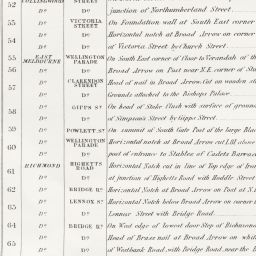 52 COLLINGWOOD STREET
Do junction of Northumberland Street
53 Do VICTORIA STREET On Foundation wall at South East corner
54 Do Do Horizontal notch at Broad Arrow on corner
Do at Victoria Street by Church Street
55 EAST MELBOURNE WELLINGTON PARADE On South East corner of Floor to Verandah of the
56 Do Do Broad Arrow on Post near N.E. corner of
57 Do CLARENDON STREET Head of nail to Broad Arrow Cut on wooden
Do Grounds attached to the Bishops Palace
58 Do GIPPS St On head of Stake Flush with surface of ground
Do of Simpsons Street by Gipps Street
59 Do POWLETT St On summit of South Gate Post of the large Blue
60 Do WELLINGTON PARADE Horizontal notch at Broad Arrow cut 1.31 above
Do post of entrance to Stables of Cadets Barracks
61 RICHMOND HIGHETTS ROAD Horizontal Notch cut in line of Top edge of Iron
Do at junction of Highetts Road with Hoddle Street
62 Do BRIDGE Rd Horizontal Notch at Broad Arrow on Post at S.E.
63 Do LENNOX St Horizontal Notch below Broad Arrow on corner
Lennox Street with Bridge Road
64 Do BRIDGE Rd On West edge of lowest door Step of Richmond
65 Do Do Head of Brass nail at Broad Arrow on white
Do of Westbank Road with Bridge Road near the